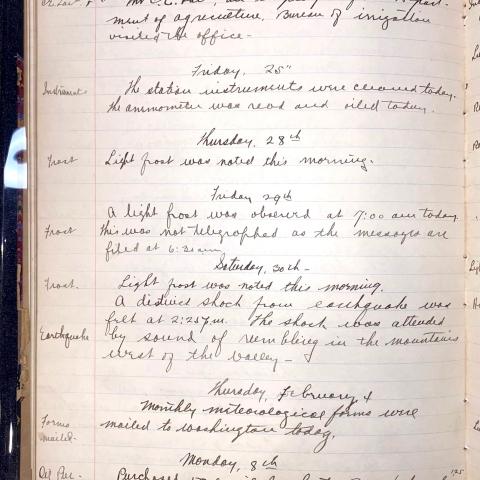 ment of agriculture, Bureau of irrigation
visited the office.
Friday, 25"
Instruments The station instruments were cleaned today.
the anmometer was read and oiled today.
Thursday, 28th
Frost Light frost was noted this morning.
Friday 29th
A light frost was observed at 7:00 am today.
Frost This was not telegraphed as the messages are
filed at 6:30am
Saturday, 30th
Frost. Light frost was noted this morning.
A distinct shock from earthquake was
felt at 2:25 p.m. The shock was attended
Earthquake by sound of rembling in the mountains
west of the valley
Thursday, February 4
Monthly meteorological forms were
Forms mailed to Washington today.
mailed.
Monday, 8th
Purchased